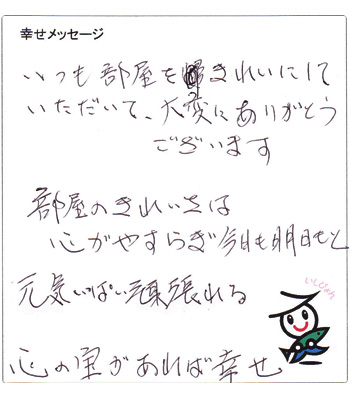 幸せメッセージ
いつも部屋をきれいにして
いただいて、大変にありがとう
ございます
部屋のきれいさは
心がやすらぎ今日も明日もと
元気いっぱい頑張れる
心の宝があれば幸せ